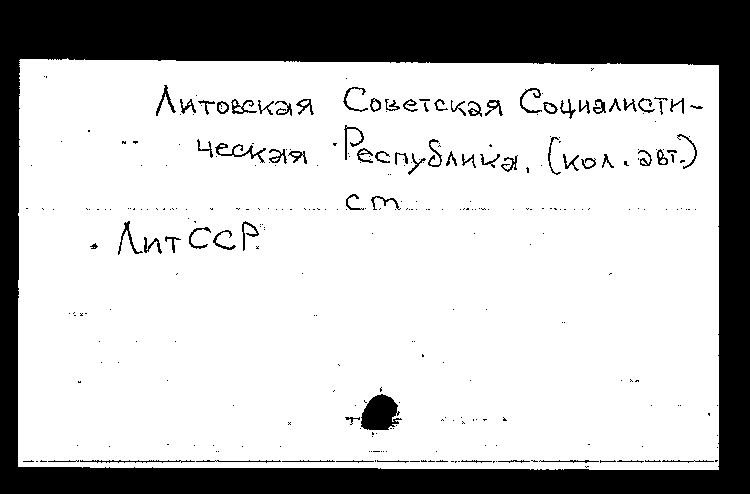 Литовская Советская Социалисти-
ческая Республика. (кол. авт.)
ст
ЛитССР.